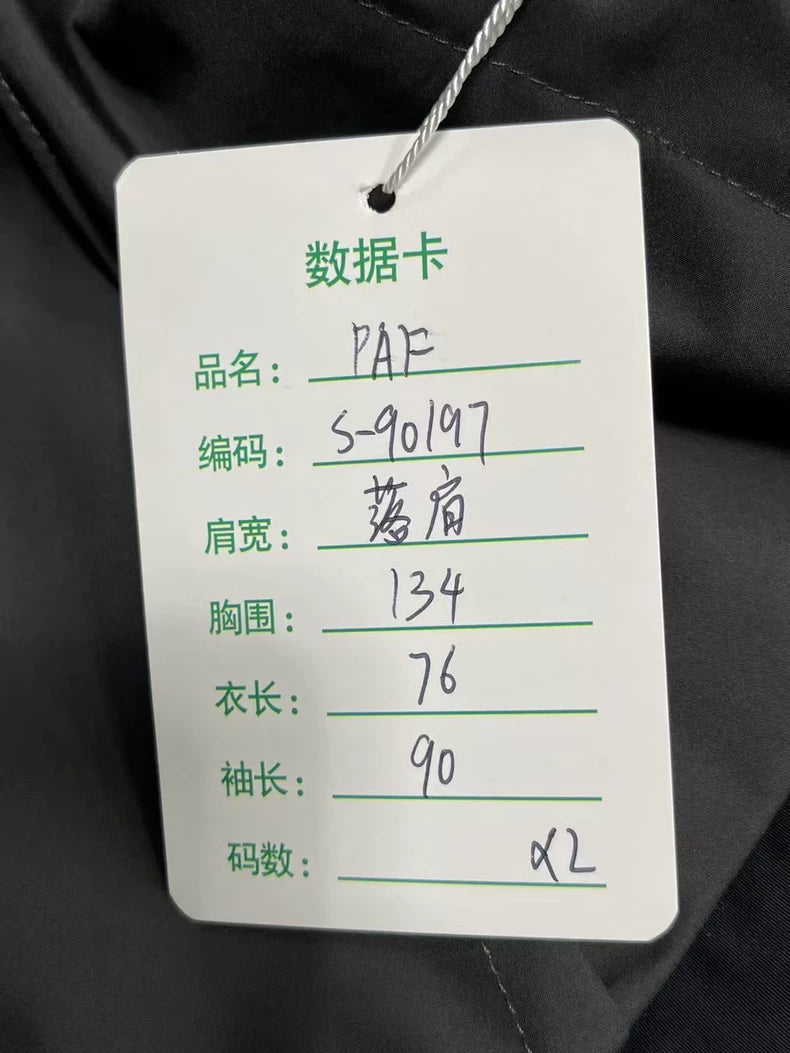 数据卡
品名： PAF
编码： S-90197
肩宽： 落肩
胸围： 134
衣长： 76
袖长： 90
码数： XL